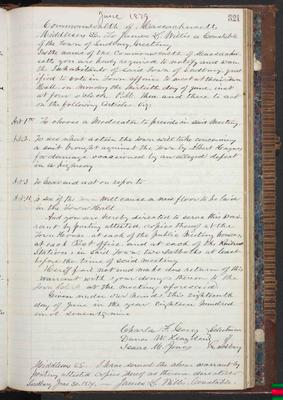 June 1879. 321
Commonwealth of Massachusetts
Middlesex SS. To James L. Willis a Constable
of the town of Sudbury, Greeting
In the name of the Commonwealth of Massachu-
setts you are hereby required to notify and warn
the Inhabitants of said Town of Sudbury, qual-
ified to vote in Town affairs to meet at the Town
Hall on Monday the thirtieth day of June, inst
at four o'clock P.M. then and there to act
on the following Articles Viz:
Art 1st To choose a Moderator to preside in said Meeting
Art. 2. To see what action the town will take concerning
a suit brought against the Town by Albert Haynes
for damage occasioned by an alleged defect
in a highway
Art 3 To hear and act on reports
Art 4 To see if the Town will cause a new floor to be laid
in the Town Hall
And you are hereby directed to serve this War-
rant by posting attested copies thereof at the
Town House at each of the public Meeting houses,
at each Post office and at each of the Railroad
Stations in said Town, two Sabbaths at least
before the time of said meeting
Hereof fail not and make due return of this
warrant with your doings thereon to the
Town Clerk at the meeting aforesaid
Given under our hands this eighteenth
day of June in the year eighteen hundred
and seventy-nine
Selectmen
of
Sudbury
Middlesex SS. I have served the above warrant by
posting attested copies thereof as therein directed
Sudbury June 30. 1879. James L. Willis Constable.